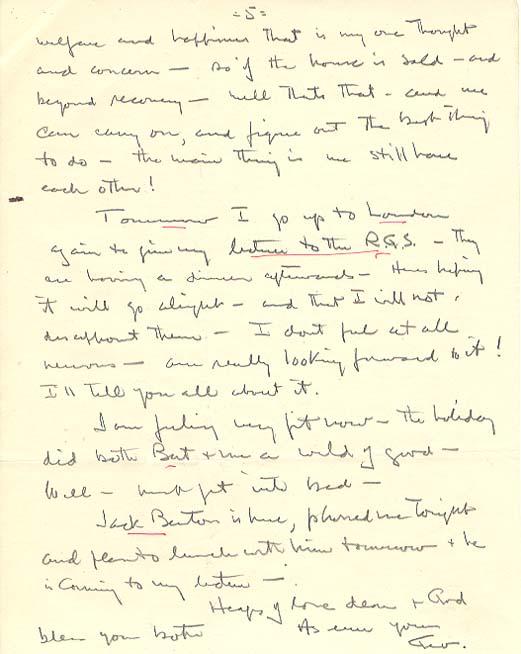 -5-
welfare and happiness that is my one thought
and concern — so if the house is sold — and
beyond recovery — well thats that - and we
can carry on, and figure out the best thing
to do — the main thing is we still have
each other!
Tomorrow I go up to London
again to give my lecture to the R.G.S. — They
are having a dinner afterwards — Heres hoping
it will go alright — and that I will not
disappoint them — I dont feel at all
nervous — am really looking forward to it!
I'll tell you all about it.
I am feeling very fit now — the holiday
did both Bert + me a world of good —
Well — must get into bed —
Jack Barton is here, phoned me tonight
and plan to lunch with him tomorrow + he
is coming to my lecture —
Heaps of love dear + God
bless you both
As ever yours
Geo.